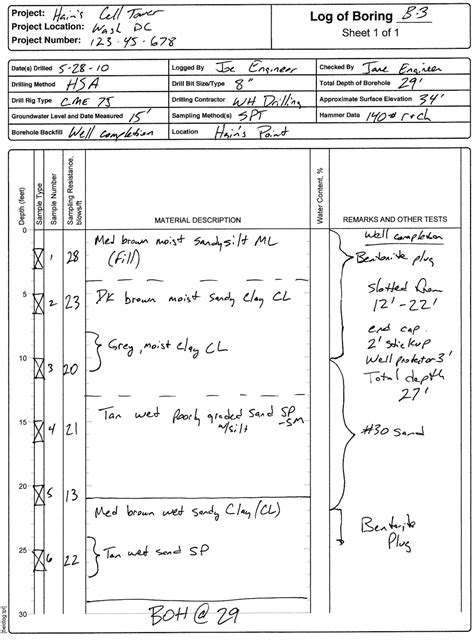 Project: Hain's Cell Tower
Project Location: Wash DC
Project Number: 123-45-678
Log of Boring B-3
Sheet 1 of 1
Date(s) Drilled 5-28-10
Logged By Joe Engineer
Checked By Jane Engineer
Drilling Method HSA
Drill Bit Size/Type 8"
Total Depth of Borehole 29'
Drill Rig Type CME 75
Drilling Contractor WH Drilling
Approximate Surface Elevation 34'
Groundwater Level and Date Measured 15'
Sampling Method(s) SPT
Hammer Data 140#
Borehole Backfill Well completion
Location Hain's Point
Depth (feet)
Sample Type
Sample Number
Sampling Resistance, blows/ft
MATERIAL DESCRIPTION
Water Content, %
REMARKS AND OTHER TESTS
0
Well completion
Med brown moist sandy silt ML
(Fill)
1 28
Bentonite plug
Slotted from
12' - 22'
5
2 23
DK brown moist sandy Clay CL
end cap
2' stickup
Grey, moist Clay CL
Well protector 3'
10
3 20
Total depth
27'
Tan wet poorly graded sand SP
w/silt -SM
15
4 21
#30 Sand
20
5 13
Med brown wet sandy Clay (CL)
Bentonite
Plug
25
6 22
Tan wet sand SP
30
BOH @ 29